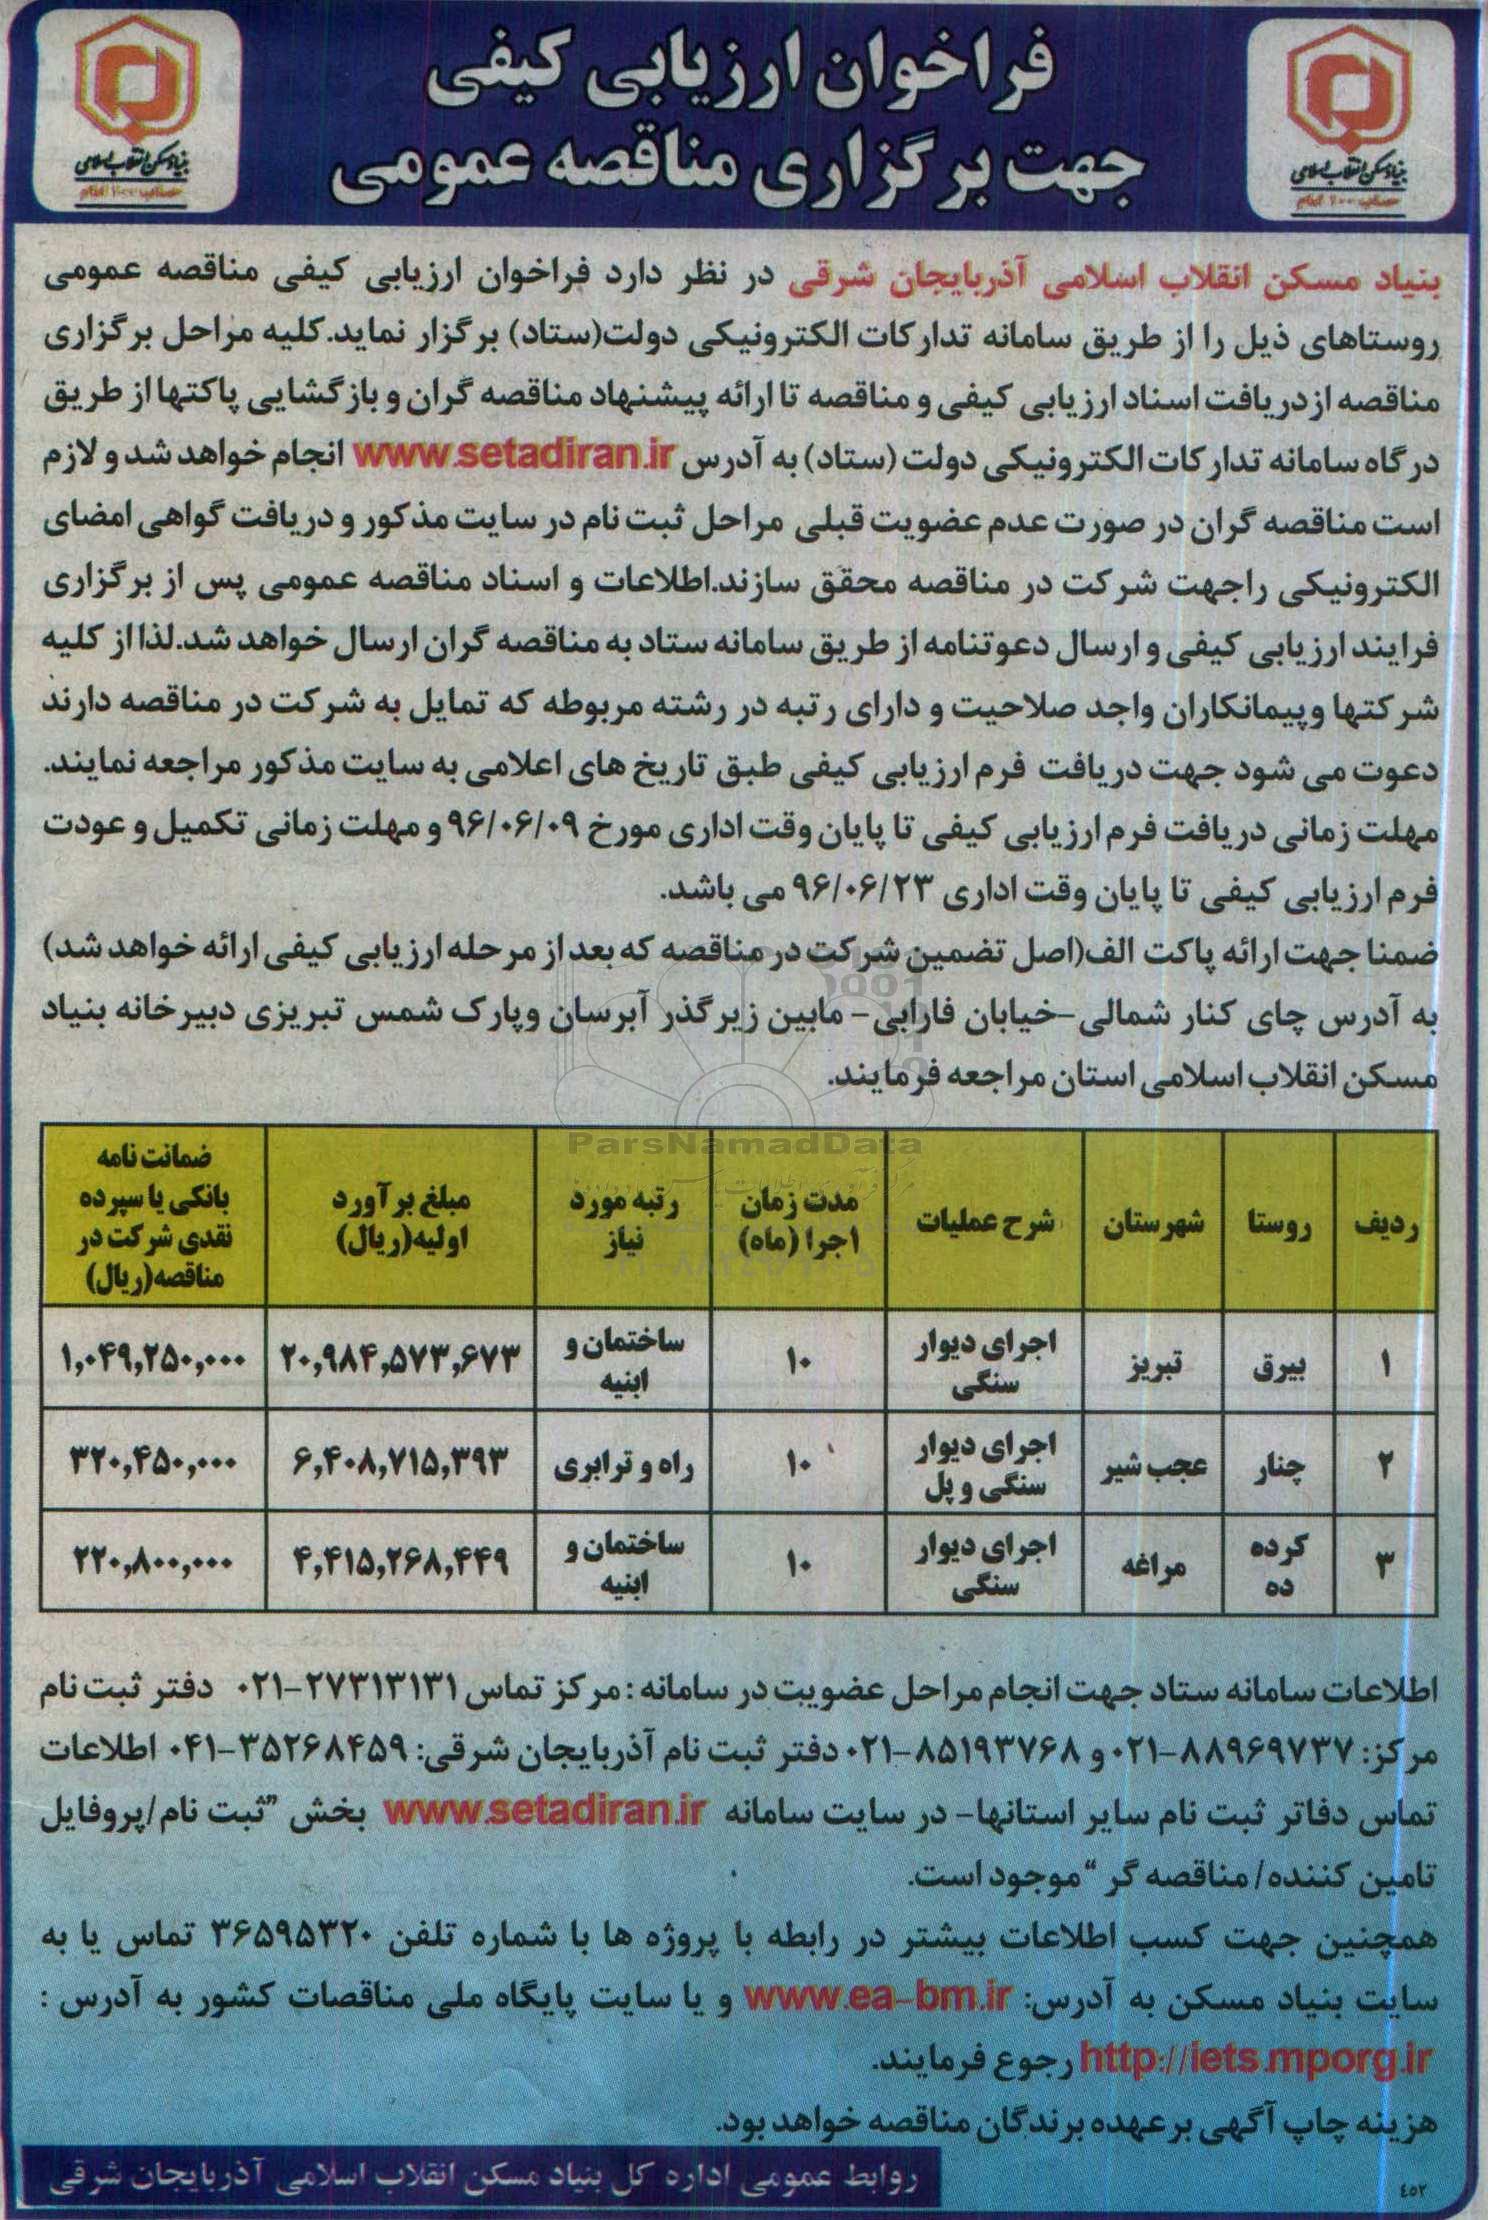 فراخوان ارزیابی کیفی
جهت برگزاری مناقصه عمومی
بنیاد مسکن انقلاب اسلامی
حساب ۱۰۰ امام
بنیاد مسکن انقلاب اسلامی
حساب ۱۰۰ امام
بنیاد مسکن انقلاب اسلامی آذربایجان شرقی در نظر دارد فراخوان ارزیابی کیفی مناقصه عمومی
روستاهای ذیل را از طریق سامانه تدارکات الکترونیکی دولت(ستاد) برگزار نماید.کلیه مراحل برگزاری
مناقصه از دریافت اسناد ارزیابی کیفی و مناقصه تا ارائه پیشنهاد مناقصه گران و بازگشایی پاکتها از طریق
درگاه سامانه تدارکات الکترونیکی دولت (ستاد) به آدرس www.setadiran.ir انجام خواهد شد و لازم
است مناقصه گران در صورت عدم عضویت قبلی مراحل ثبت نام در سایت مذکور و دریافت گواهی امضای
الکترونیکی راجهت شرکت در مناقصه محقق سازند.اطلاعات و اسناد مناقصه عمومی پس از برگزاری
فرایند ارزیابی کیفی و ارسال دعوتنامه از طریق سامانه ستاد به مناقصه گران ارسال خواهد شد.لذا از کلیه
شرکتها و پیمانکاران واجد صلاحیت و دارای رتبه در رشته مربوطه که تمایل به شرکت در مناقصه دارند
دعوت می شود جهت دریافت فرم ارزیابی کیفی طبق تاریخ های اعلامی به سایت مذکور مراجعه نمایند.
مهلت زمانی دریافت فرم ارزیابی کیفی تا پایان وقت اداری مورخ ۹۶/۰۶/۰۹ و مهلت زمانی تکمیل و عودت
فرم ارزیابی کیفی تا پایان وقت اداری ۹۶/۰۶/۲۳ می باشد.
ضمنا جهت ارائه پاکت الف(اصل تضمین شرکت در مناقصه که بعد از مرحله ارزیابی کیفی ارائه خواهد شد)
به آدرس چای کنار شمالی-خیابان فارابی- مابین زیرگذر آبرسان وپارک شمس تبریزی دبیرخانه بنیاد
مسکن انقلاب اسلامی استان مراجعه فرمایند.
ParsNamadData
ردیف | روستا | شهرستان | شرح عملیات | مدت زمان اجرا (ماه) | رتبه مورد نیاز | مبلغ برآورد اولیه(ریال) | ضمانت نامه بانکی یا سپرده نقدی شرکت در مناقصه(ریال)
۱ | بیرق | تبریز | اجرای دیوار سنگی | ۱۰ | ساختمان و ابنیه | ۲۰,۹۸۴,۵۷۳,۶۷۳ | ۱,۰۴۹,۲۵۰,۰۰۰
۲ | چنار | عجب شیر | اجرای دیوار سنگی و پل | ۱۰ | راه و ترابری | ۶,۴۰۸,۷۱۵,۳۹۳ | ۳۲۰,۴۵۰,۰۰۰
۳ | کرده ده | مراغه | اجرای دیوار سنگی | ۱۰ | ساختمان و ابنیه | ۴,۴۱۵,۲۶۸,۴۴۹ | ۲۲۰,۸۰۰,۰۰۰
اطلاعات سامانه ستاد جهت انجام مراحل عضویت در سامانه : مرکز تماس ۲۷۳۱۳۱۳۱-۰۲۱ دفتر ثبت نام
مرکز: ۸۸۹۶۹۷۳۷-۰۲۱ و ۸۵۱۹۳۷۶۸-۰۲۱ دفتر ثبت نام آذربایجان شرقی: ۳۵۲۶۸۴۵۹-۰۴۱ اطلاعات
تماس دفاتر ثبت نام سایر استانها- در سایت سامانه www.setadiran.ir بخش "ثبت نام/پروفایل
تامین کننده/ مناقصه گر" موجود است.
همچنین جهت کسب اطلاعات بیشتر در رابطه با پروژه ها با شماره تلفن ۳۶۵۹۵۳۲۰ تماس یا به
سایت بنیاد مسکن به آدرس: www.ea-bm.ir و یا سایت پایگاه ملی مناقصات کشور به آدرس :
http://iets.mporg.ir رجوع فرمایند.
هزینه چاپ آگهی بر عهده برندگان مناقصه خواهد بود.
روابط عمومی اداره کل بنیاد مسکن انقلاب اسلامی آذربایجان شرقی
٤٥٢